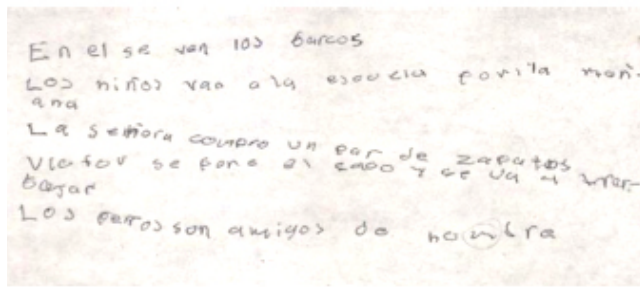 En el se ven los barcos
Los niños van a la escuela por la mañ-
ana
La señora compro un par de zapatos
se pone el y se va a trar-
bagar
Los perros son amigos de hombra